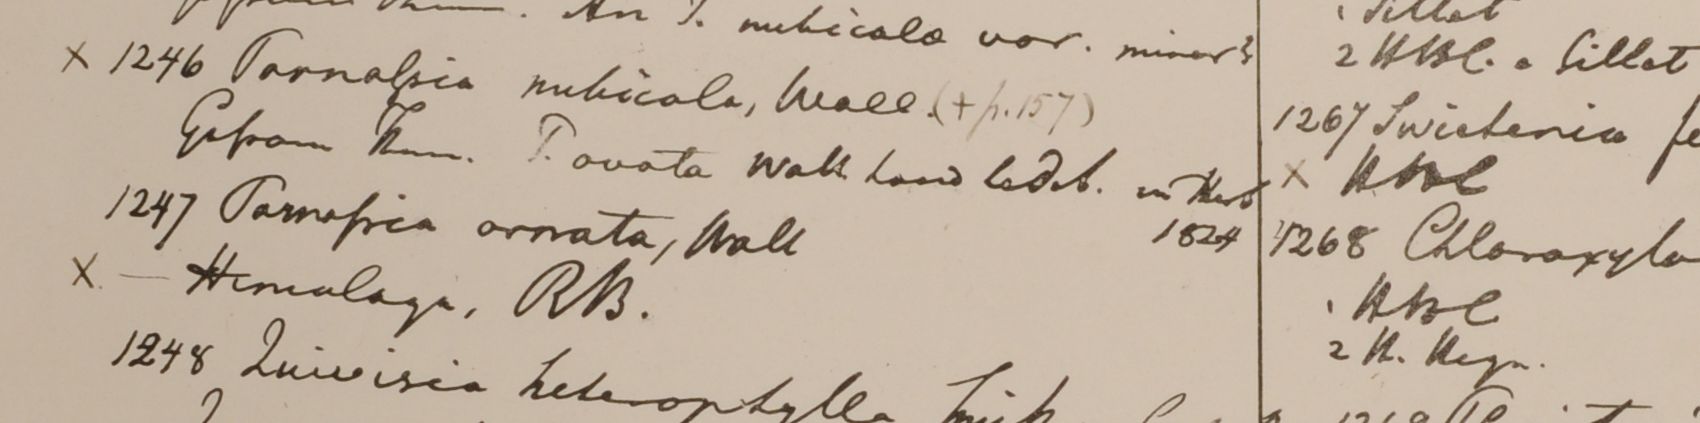 An P. nubicola var. minor?
x 1246 Parnassia nubicola, Wall. (+ p. 157)
P. ovata Wall hand Ledeb. in Herb
1824
1247 Parnassia ornata, Wall
x — Himalaya, RB.
1248 Quivisia heterophylla
1 Sillet
2 HBC. a Sillet
1267 Swietenia fe
x HBC
1268 Chloroxylo
1 HBC
2 H. Heyn.
1269